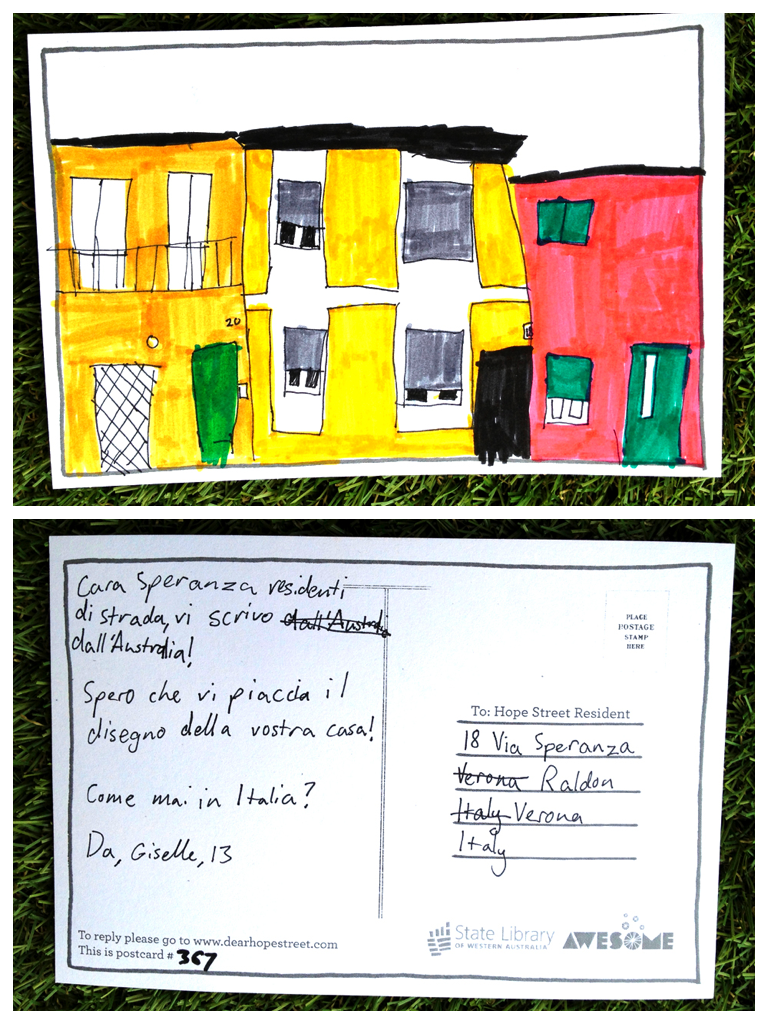 20
18
Cara Speranza residenti
di strada, vi scrivo dall'Australia
dall'Australia!
Spero che vi piaccia il
disegno della vostra casa!
Come mai in Italia?
Da, Giselle, 13
To reply please go to www.dearhopestreet.com
This is postcard # 367
PLACE
POSTAGE
STAMP
HERE
To: Hope Street Resident
18 Via Speranza
Verona Raldon
Italy Verona
Italy
State Library
OF WESTERN AUSTRALIA
AWESOME